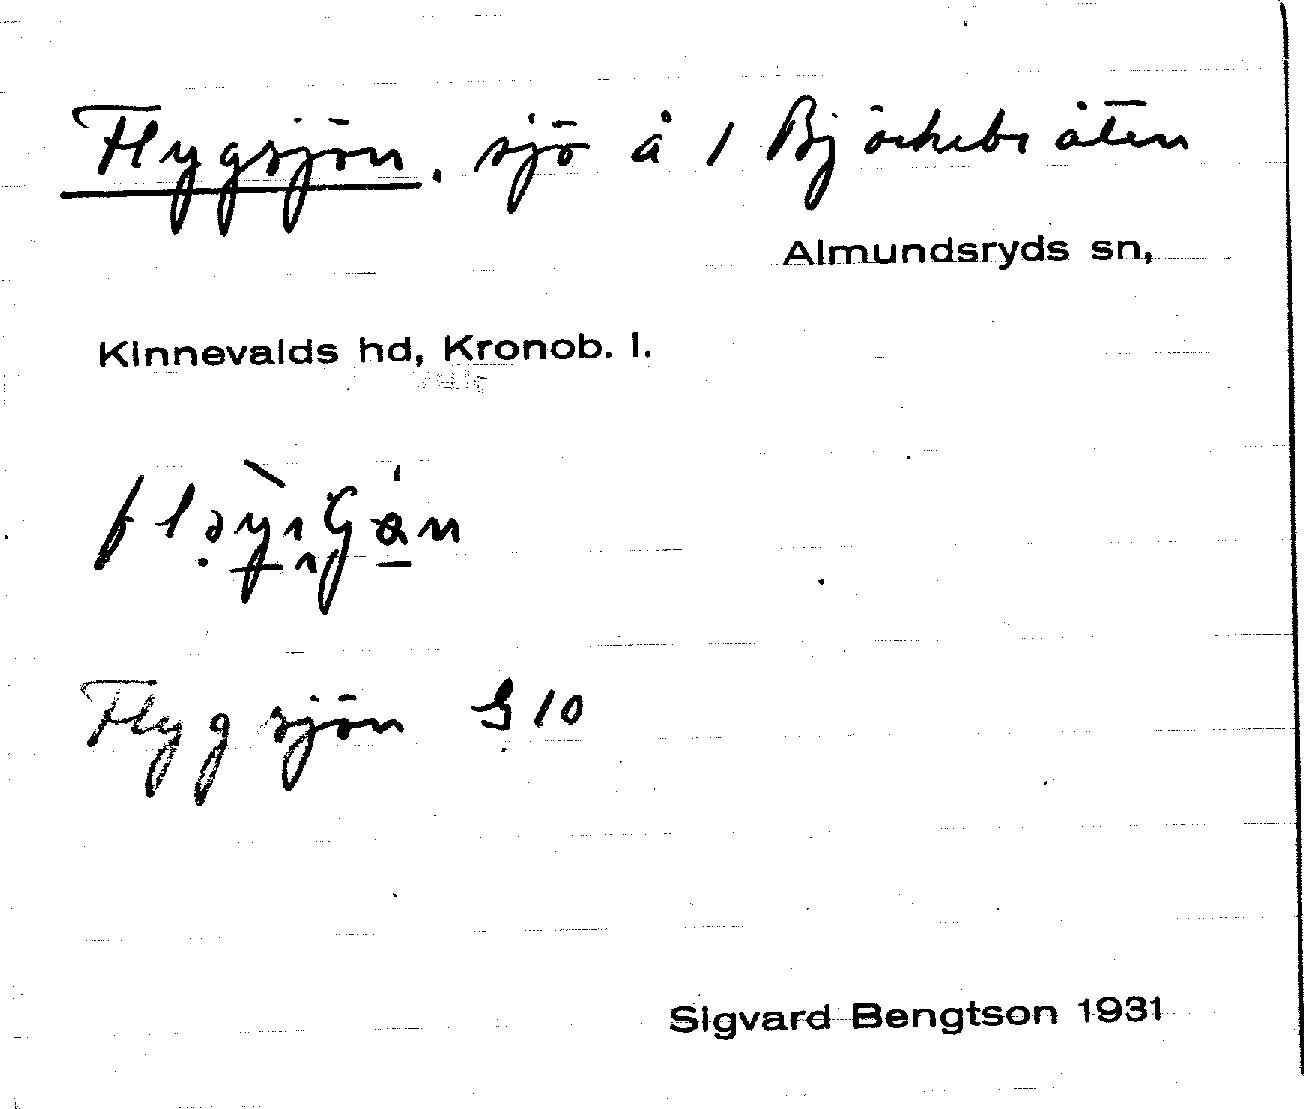 Flygsjön, sjö å 1 Björkebråten
Almundsryds sn,
Kinnevalds hd, Kronob. l.
Flygsjön G10
Sigvard Bengtson 1931